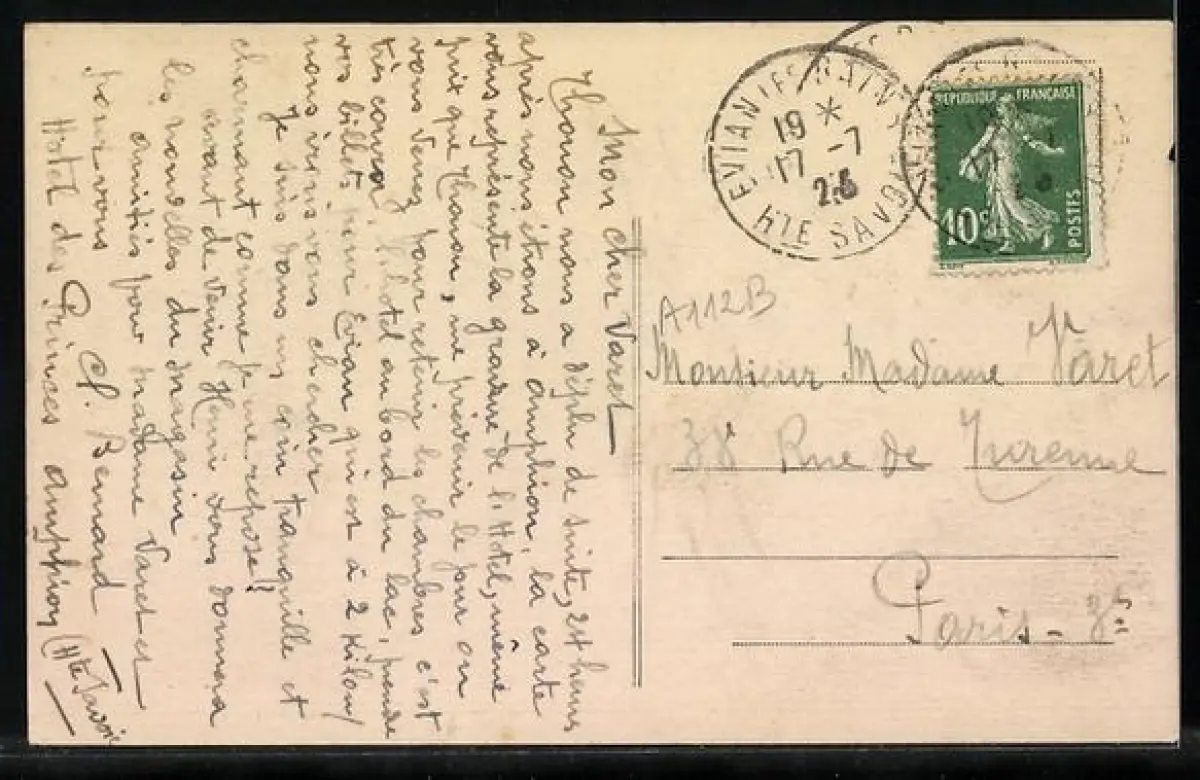 Mon cher Varet
Thonon nous a déplu de suite, 2 heures
après nous étions à amphion, la carte
vous représente la gravure de l'Hôtel, même
prix que Thonon, me prévenir le jour ou
vous venez pour retenir les chambres c'est
très couru. l'hôtel au bord du lac, prendre
vos billets pour Evian qui est à 2 Kilom/
nous irons vous chercher
Je suis dans un coin tranquille et
charmant comme je me repose!
avant de venir Henri vous donnera
les nouvelles du magasin
amitiés pour madame Varet et
pour vous
Bernard
Hotel des Princes amphion (Hte Savoie
EVIAN LES BAINS
19 *
17 -7
26
HTE SAVOIE
REPUBLIQUE FRANÇAISE
10c
POSTES
A112B
Monsieur Madame Varet
38 Rue de Turenne
Paris - 3e